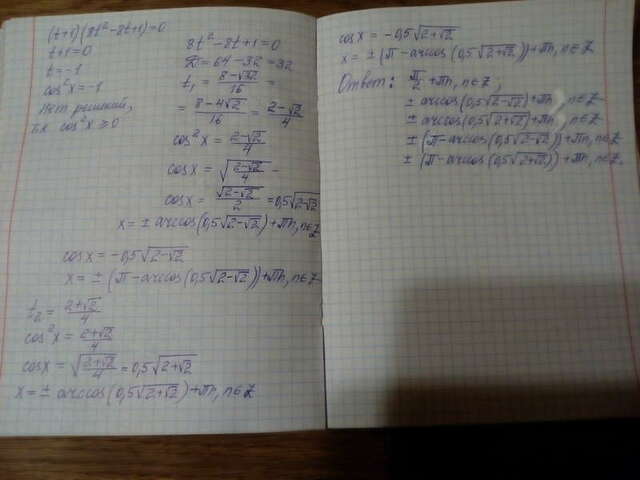 (t+1)(8t²-8t+1)=0
t+1=0
t=-1
cos²x=-1
Нет решений,
т.к cos²x≥0
8t²-8t+1=0
D=64-32=32
t₁=(8-√32)/16=
=(8-4√2)/16=(2-√2)/4
cos²x=(2-√2)/4
cosx=√((2-√2)/4)
cosx=√(2-√2)/2=0,5√(2-√2)
x=±arccos(0,5√(2-√2))+πn, n∈Z
cosx=-0,5√(2-√2)
x=±(π-arccos(0,5√(2-√2)))+πn, n∈Z
t₂=(2+√2)/4
cos²x=(2+√2)/4
cosx=√((2+√2)/4)=0,5√(2+√2)
x=±arccos(0,5√(2+√2))+πn, n∈Z
cosx=-0,5√(2+√2)
x=±(π-arccos(0,5√(2+√2)))+πn, n∈Z
Ответ: π/2+πn, n∈Z,
±arccos(0,5√(2-√2))+πn, n∈Z
±arccos(0,5√(2+√2))+πn, n∈Z
±(π-arccos(0,5√(2-√2)))+πn, n∈Z
±(π-arccos(0,5√(2+√2)))+πn, n∈Z.